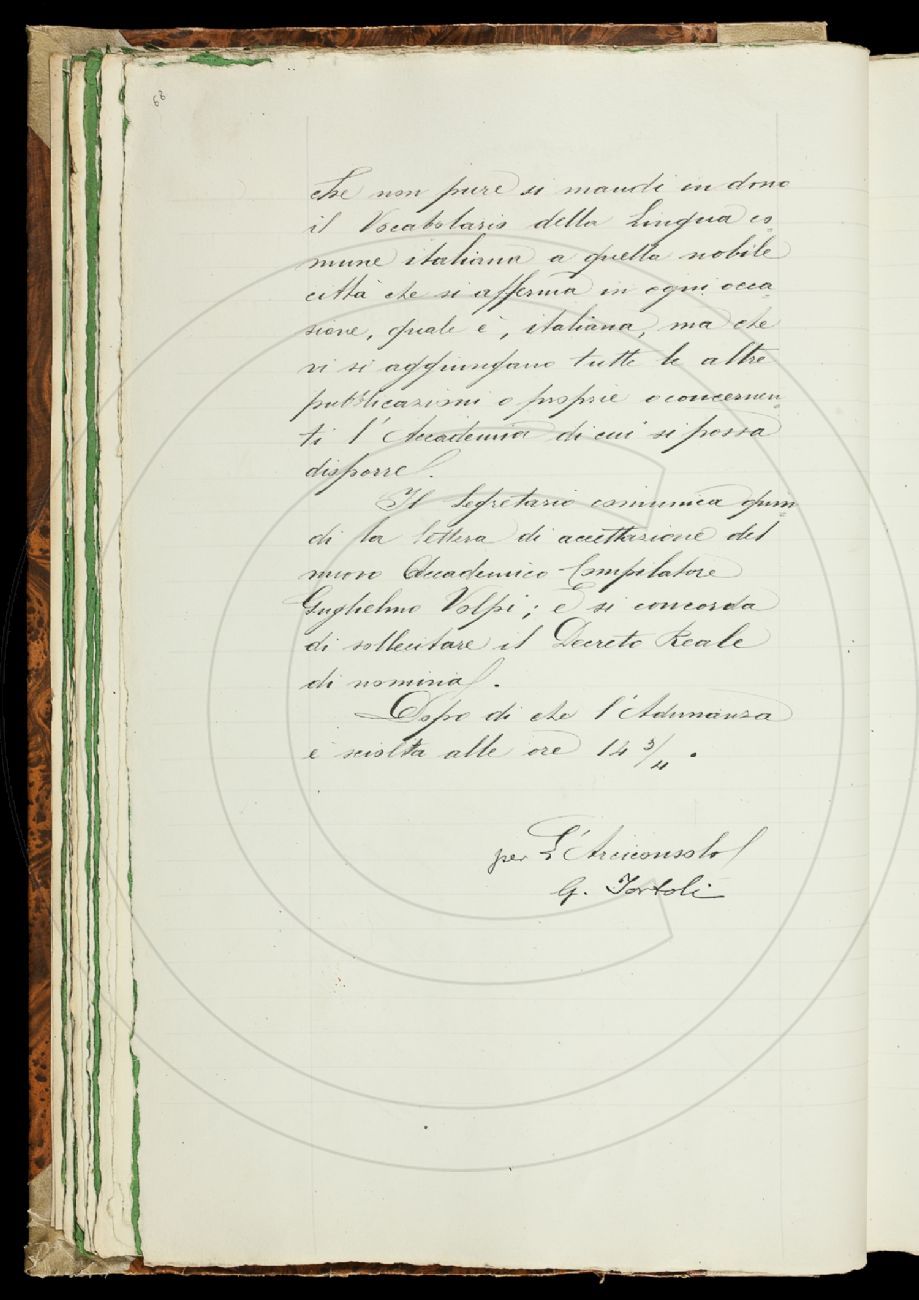 68
che non pure si mandi in dono
il Vocabolario della Lingua co=
mune italiana a quella nobile
città che si afferma in ogni occa=
sione, quale è, italiana, ma che
vi si aggiungano tutte le altre
pubblicazioni o proprie o concernen=
ti l'Accademia di cui si possa
disporre.
Il Segretario comunica quin=
di la lettera di accettazione del
nuovo Accademico Compilatore
Guglielmo Volpi; e si concorda
di sollecitare il Decreto Reale
di nomina.
Dopo di che l'Adunanza
è sciolta alle ore 14 3/4.
per L'Arciconsolo
G. Tortoli